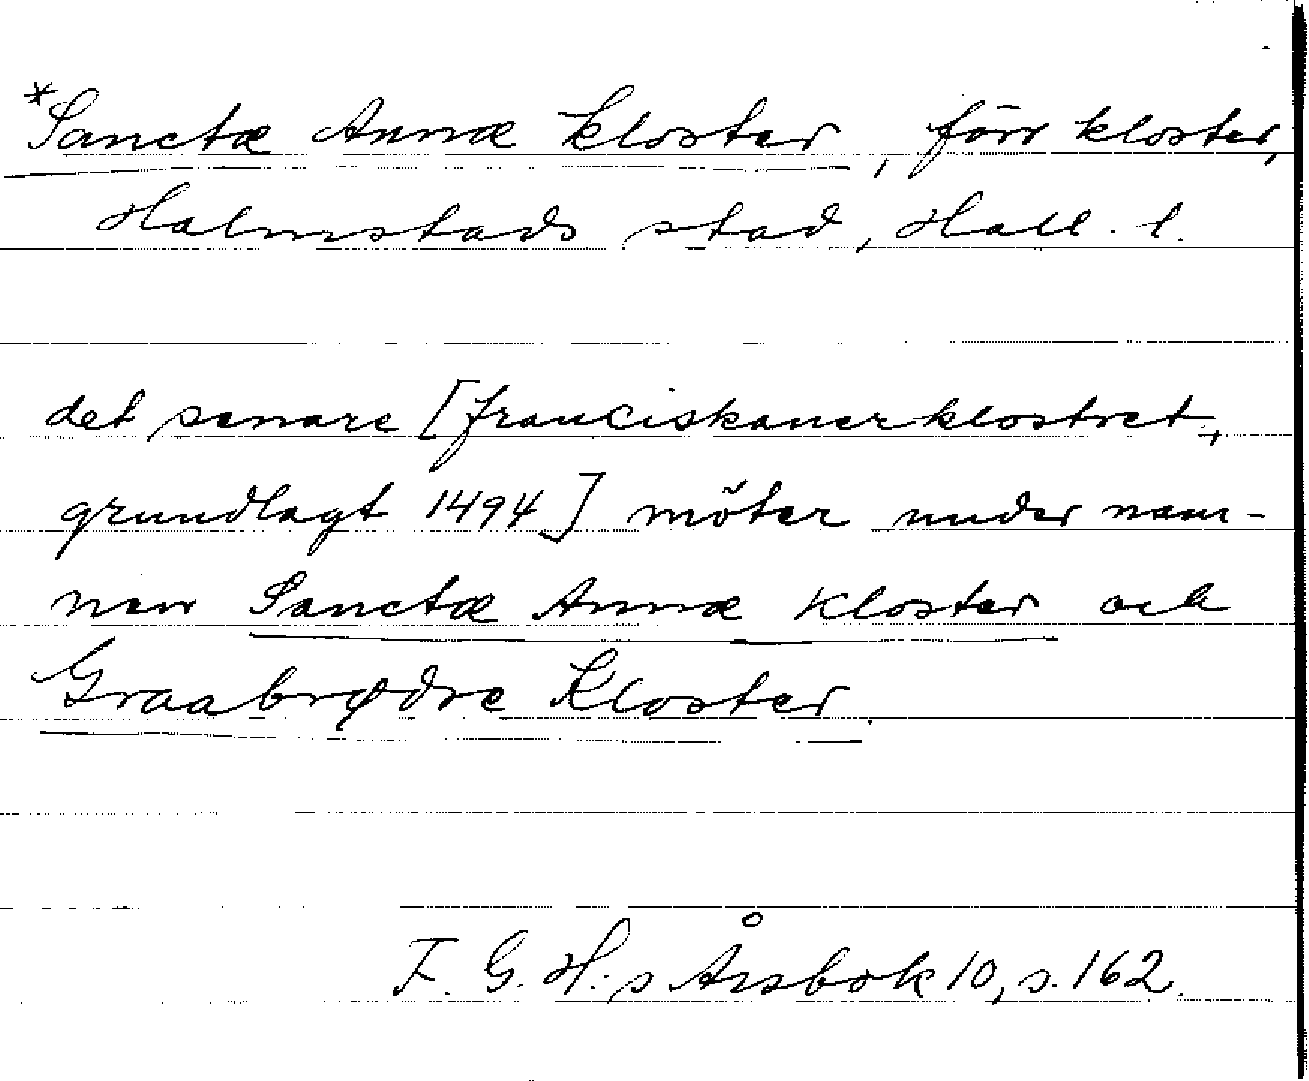 *Sanctæ Annæ kloster, förr kloster,
Halmstads stad, Hall. l.
det senare [franciskanerklostret,
grundlagt 1494] möter under nam-
nen Sanctæ Annæ kloster och
Graabrødre Kloster.
F. G. H:s Årsbok 10, s. 162.